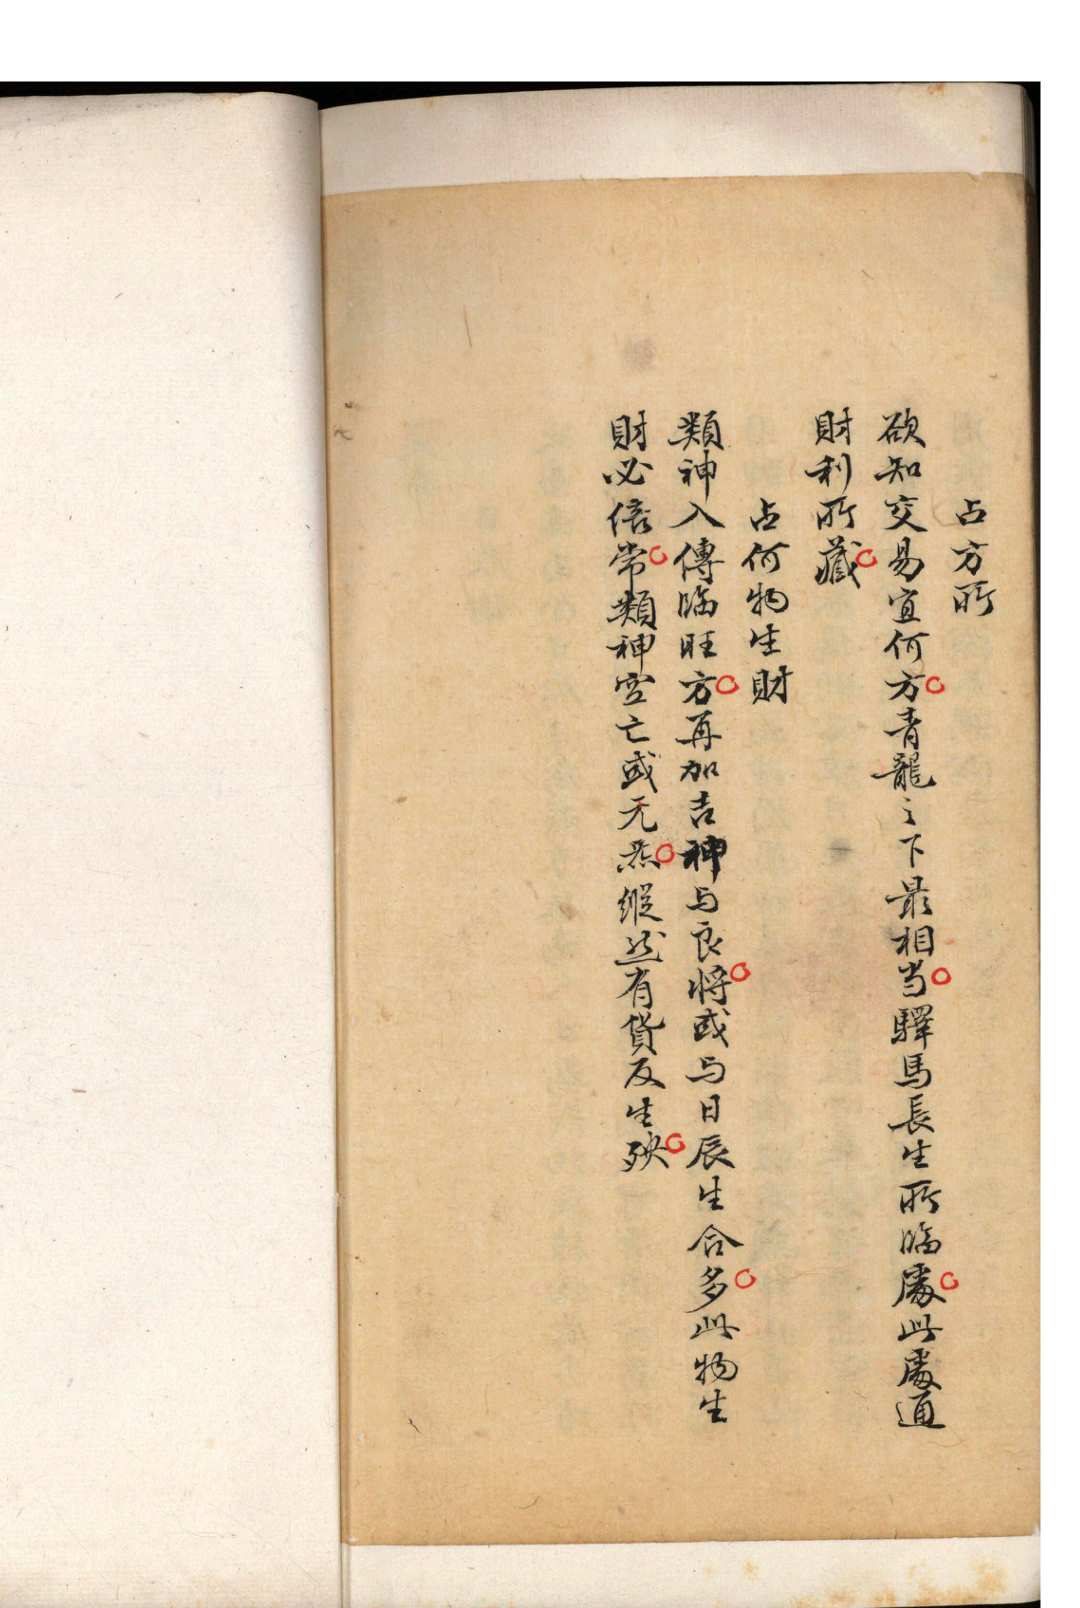 占方所
欲知交易宜何方。青龍之下最相当。驛馬長生所臨處。此處通
財利所藏。
占何物生財
類神入傳臨旺方。再加吉神与良將。或与日辰生合多。此物生
財必倍常。類神空亡或无炁。縱然有貨反生殃。